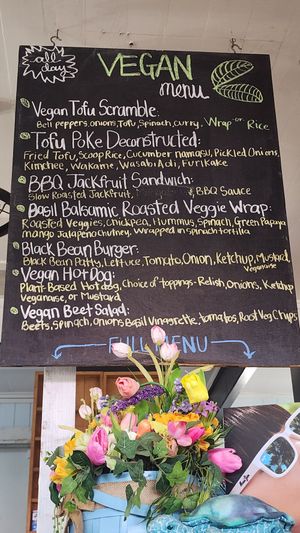 all day
VEGAN
menu
Vegan Tofu Scramble:
Bell peppers, onions, Tofu, Spinach, Curry. Wrap or Rice
Tofu Poke Deconstructed:
Fried Tofu, Scoop Rice, Cucumber namasu, Pickled Onions,
Kimchee, Wakame, Wasabi Aoli, Furikake
BBQ Jackfruit Sandwich:
Slow Roasted Jackfruit, BBQ Sauce
Basil Balsamic Roasted Veggie Wrap:
Roasted Veggies, Chickpea, Hummus, Spinach, Green Papaya
mango Jalapeno Chutney. Wrapped in Spinach tortilla
Black Bean Burger:
Black Bean Patty, Lettuce, Tomato, Onion, Ketchup, Mustard,
Veganaise
Vegan Hot Dog:
Plant-Based Hot dog, Choice of toppings - Relish, Onions, Ketchup
Veganaise, or Mustard
Vegan Beet Salad:
Beets, Spinach, Onions Basil Vinagrette, tomatos, Root Veg Chips
FULL MENU